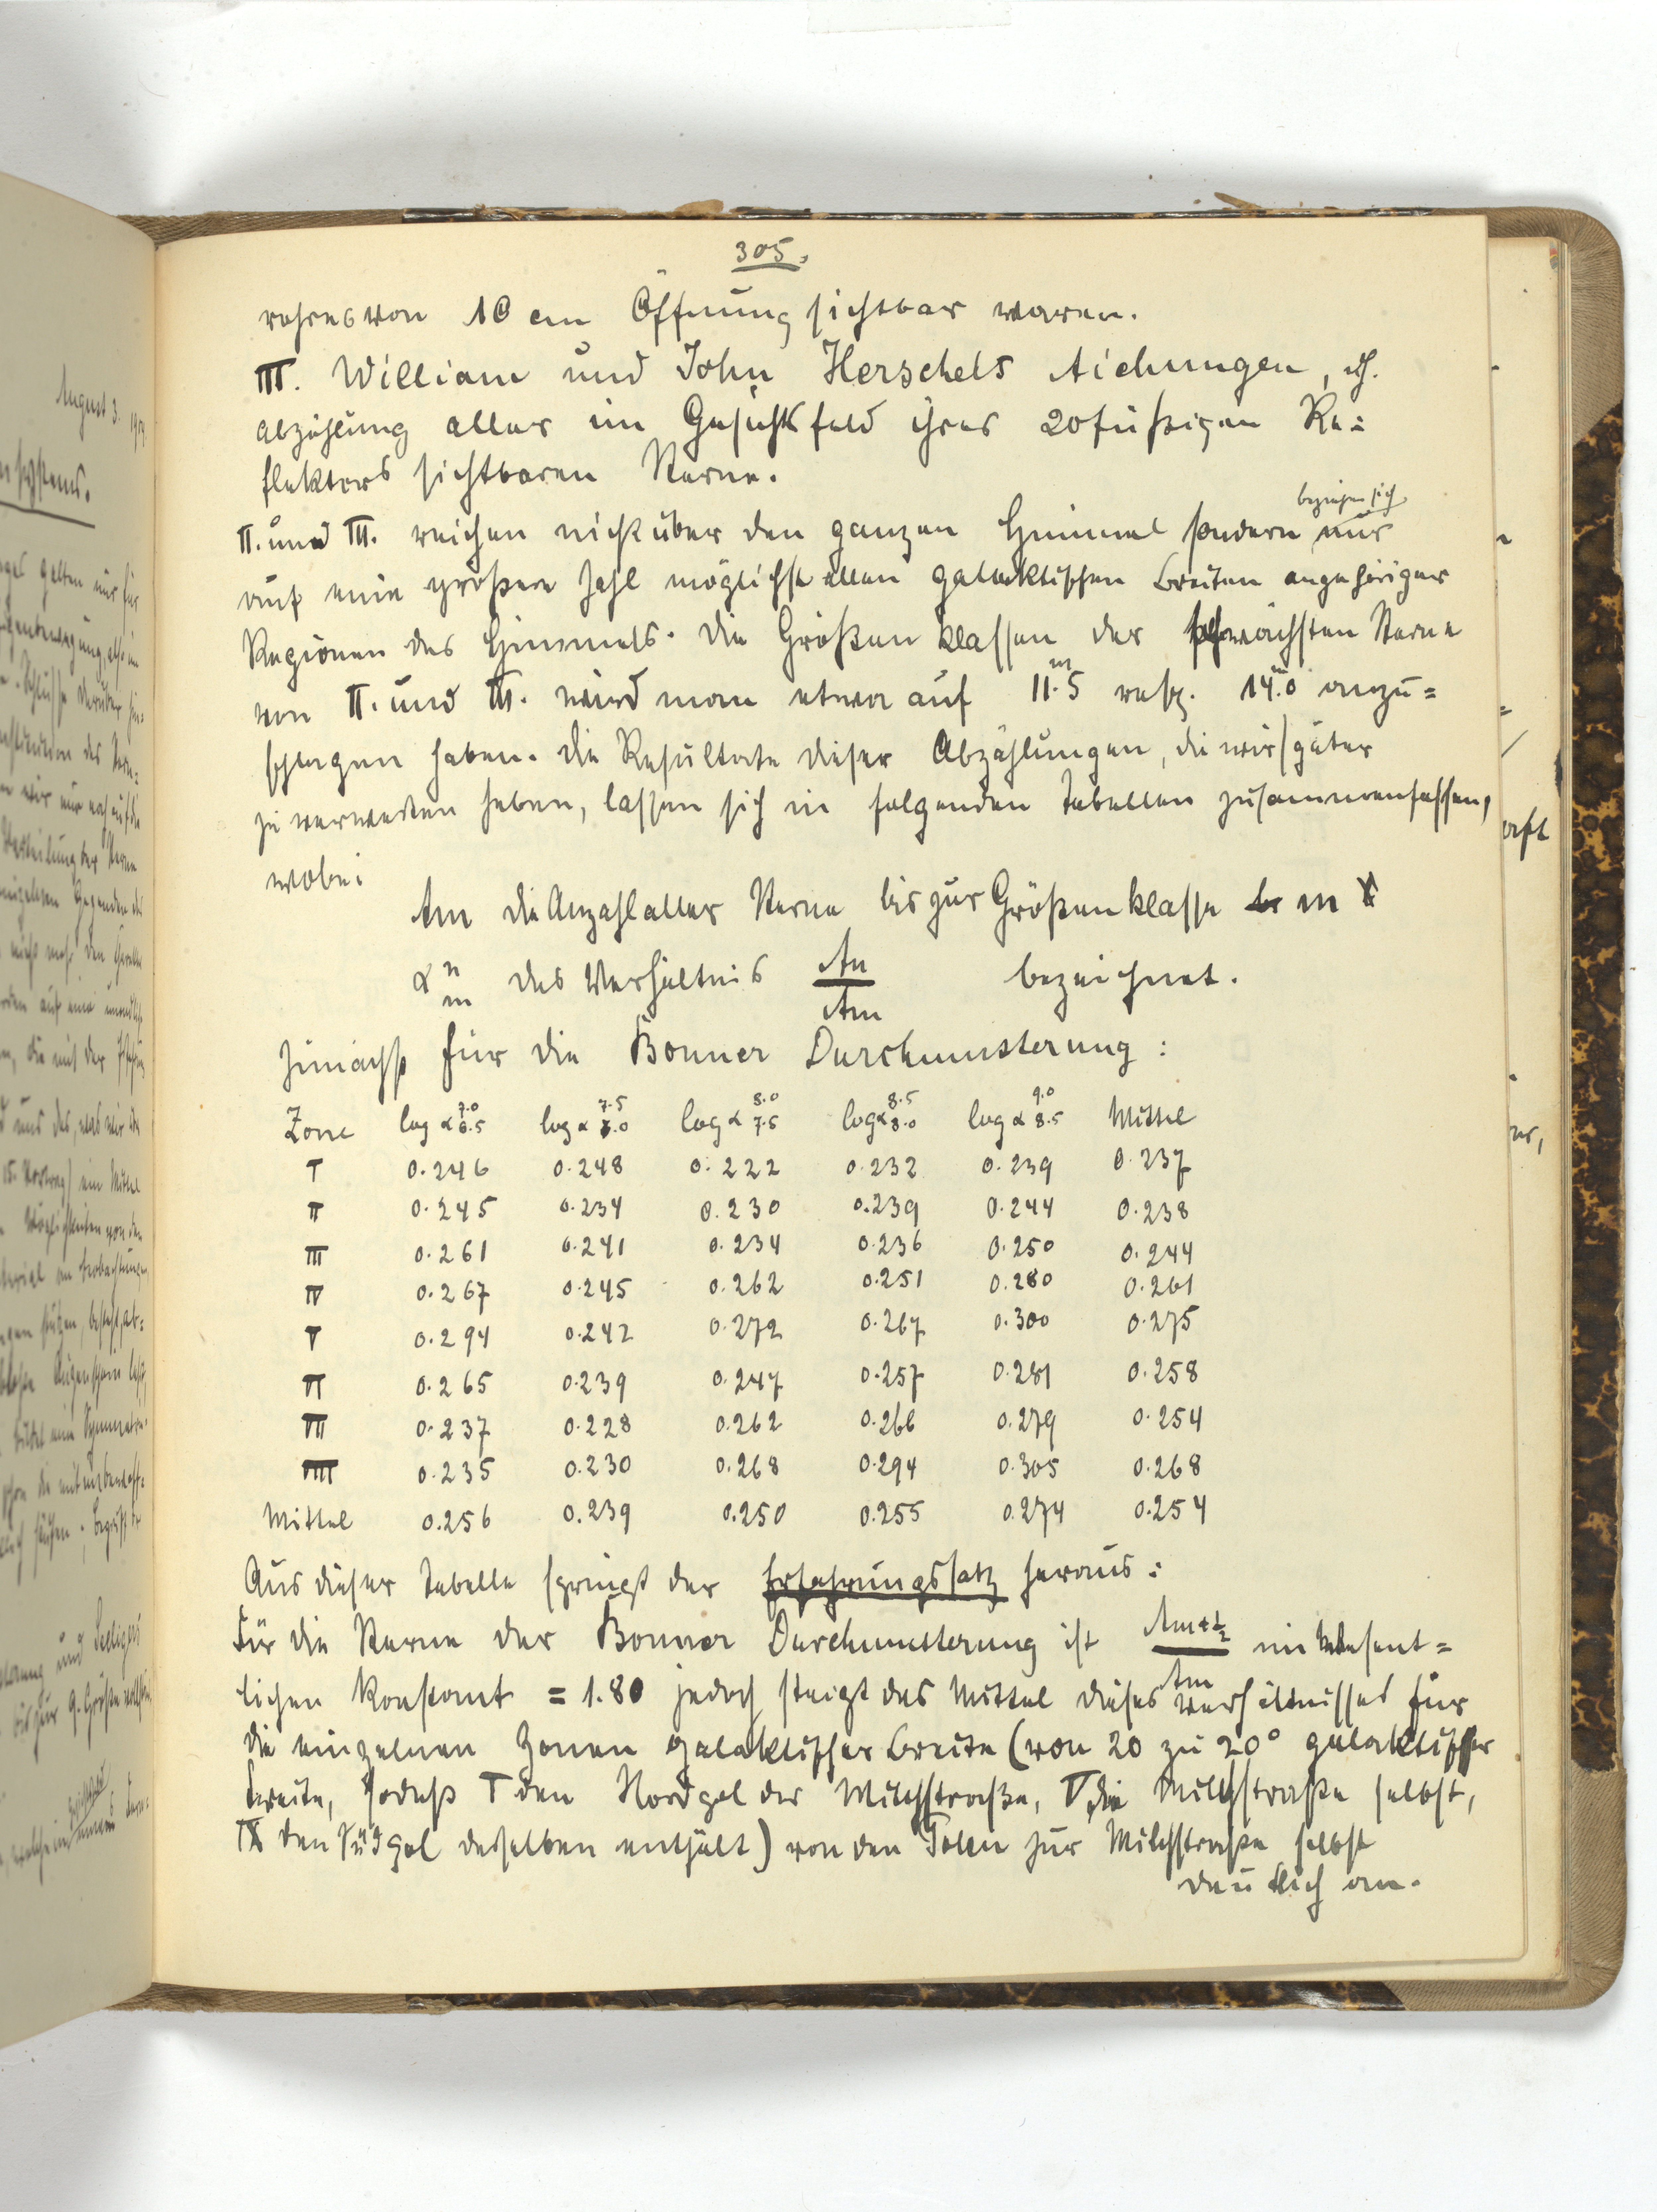 305.
rohres von 10 cm Öffnung sichtbar waren.
III. William und John Herschels Aichungen, dh.
Abzählung aller im Gesichtsfeld ihres 20füßigen Re=
flektors sichtbaren Sterne.
beziehen sich
II. und III. reichen nicht über den ganzen Himmel sondern nur
auf eine größere Zahl möglichst allen galaktischen Breiten angehöriger
Regionen des Himmels. Die Größenklassen der schwächsten Sterne
von II. und III. wird man etwa auf 11.5 resp. 14.0 anzu=
schlagen haben. Die Resultate dieser Abzählungen, die wir später
zu verwerten haben, lassen sich in folgenden Tabellen zusammenfassen,
wobei
Am die Anzahl aller Sterne bis zur Größenklasse m
α n m das Verhältnis An / Am bezeichnet.
Zunächst für die Bonner Durchmusterung:
Zone log α 7.0 6.5 log α 7.5 7.0 log α 8.0 7.5 log α 8.5 8.0 log α 9.0 8.5 Mittel
I 0.246 0.248 0.222 0.232 0.239 0.237
II 0.245 0.234 0.230 0.239 0.244 0.238
III 0.261 0.241 0.234 0.236 0.250 0.244
IV 0.267 0.245 0.262 0.251 0.280 0.261
V 0.294 0.242 0.272 0.267 0.300 0.275
VI 0.265 0.239 0.247 0.257 0.281 0.258
VII 0.237 0.228 0.262 0.266 0.279 0.254
VIII 0.235 0.230 0.268 0.294 0.305 0.268
Mittel 0.256 0.239 0.250 0.255 0.274 0.254
Aus dieser Tabelle springt der Erfahrungssatz heraus:
Für die Sterne der Bonner Durchmusterung ist Am+½ / Am im Wesent=
lichen konstant = 1.80 jedoch steigt das Mittel dieses Verhältnisses für
die einzelnen Zonen galaktischer Breite (von 20 zu 20° galaktischer
Breite, sodaß I den Nordpol der Milchstraße, V die Milchstraße selbst,
IX den Südpol derselben enthält) von den Polen zur Milchstraße selbst
deutlich an.